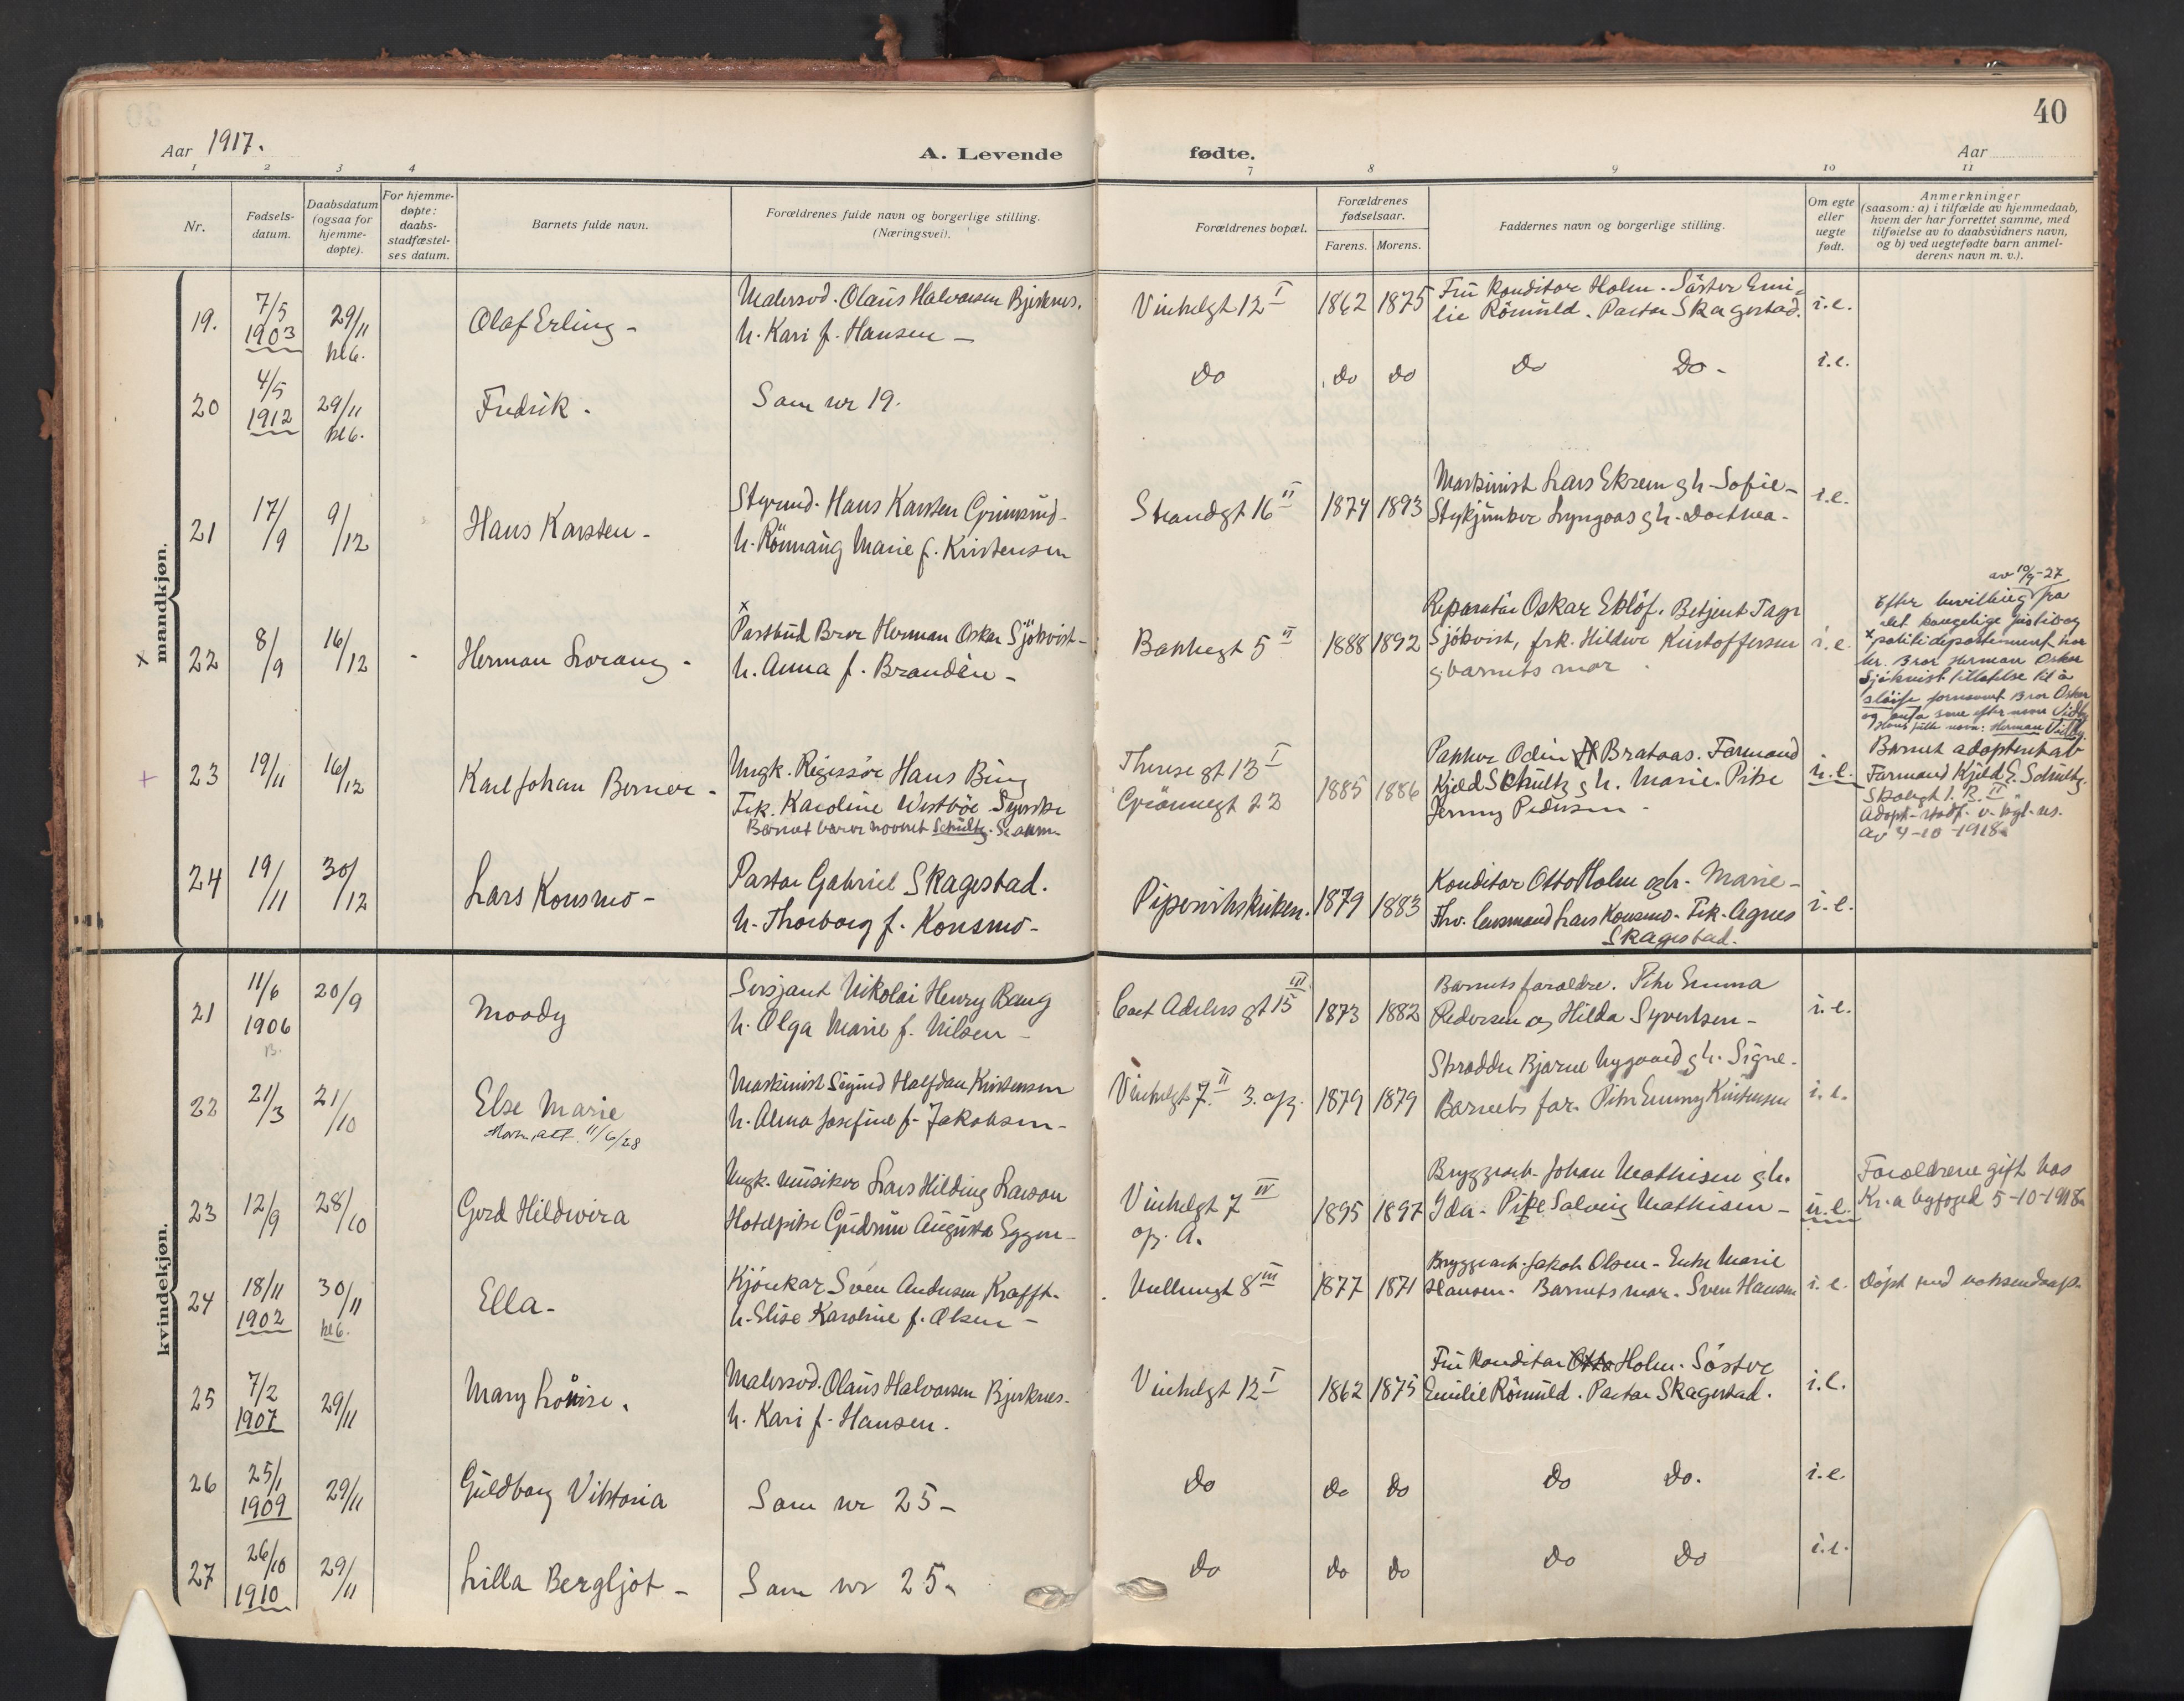 40
Aar 1917.
A. Levende fødte.
Aar
1 2 3 4 7 8 9 10 11
Nr.
Fødsels-
datum.
Daabsdatum
(ogsaa for
hjemme-
døpte).
For hjemme-
døpte:
daabs-
stadfæstel-
ses datum.
Barnets fulde navn.
Forældrenes fulde navn og borgerlige stilling.
(Næringsvei).
Forældrenes bopæl.
Forældrenes
fødselsaar.
Farens. Morens.
Faddernes navn og borgerlige stilling.
Om egte
eller
uegte
født.
Anmerkninger
(saasom: a) i tilfælde av hjemmedaab,
hvem der har forrettet samme, med
tilføielse av to daabsvidners navn,
og b) ved uegtefødte barn anmel-
derens navn m. v.).
mandkjøn.
19. 7/5 1903 29/11 kl 6. Olaf Erling -
Malersvd. Olaus Halvorsen Bjerknes.
h. Kari f. Hansen -
Vinkelgt 12 I 1862 1875
Fru Konditor Holm. Søster Emi-
lie Römuld. Pastor Skagestad. i.e.
20 4/5 1912 29/11 kl 6. Fredrik.
Som nr 19.
Do Do Do Do Do - i.e.
21 17/9 9/12 Hans Karsten -
Styrmd. Hans Karsten Grimsrud -
h. Rönnaug Marie f. Kristensen
Strandgt 16 II 1874 1893
Maskinist Lars Ekrem & h. Sofie -
Stykjunker Lyngaas & h. Dorthea - i.e.
x 22 8/9 16/12 - Herman Lorang -
x Postbud Bror Herman Oskar Sjökvist -
h. Anna f. Brandén -
Bakkegt 5 II 1888 1892
Reparatör Oskar Eklöf. Betjent Tage
Sjökvist, frk. Hildur Kristoffersen
& barnets mor. i.e.
av 10/9-27
Efter bevilling fra
det kongelige justis og
x politidepartement har
hr. Bror Herman Oskar
Sjökvist tillatelse til å
sløife fornavnet Bror Oskar
og anta som efternavn Vidby
Hans fulle navn: Herman Vidby.
+ 23 19/11 16/12 Karl Johan Berner -
Ungk. Regissör Hans Bing
Frk. Karoline Westbøe Syerske
Barnet bærer navnet Schultz. Se anm.
Therese gt 13 I
Grönnegt 22 1885 1886
Pakker Odin Brataas. Formand
Kjeld Schultz & h. Marie. Pike
Jenny Pedersen - u.e.
Barnet adoptert av
Formand Kjeld E. Schultz,
Skovgt 1. R. II
Adopt. stadf. v. kgl. res.
av 4-10-1918.
24 19/11 30/12 Lars Konsmo -
Pastor Gabriel Skagestad.
h. Thorborg f. Konsmo -
Pipervikskirken. 1879 1883
Konditor Otto Holm og h. Marie -
Fhv. lensmand Lars Konsmo. Frk. Agnes
Skagestad. i.e.
kvindekjøn.
21 11/6 1906 20/9 Moody
B.
Sersjant Nikolai Henry Bang
h. Olga Marie f. Nilsen -
Cort Adelers gt 15 III 1873 1882
Barnets foreldre. Pike Emma
Pedersen og Hilda Syvertsen - i.e.
22 21/3 21/10 Else Marie
Navn. att. 11/6/28
Maskinist Sigurd Halfdan Kristensen
h. Alma Josefine f. Jakobsen -
Vinkelgt 7 II 3. opg. 1879 1879
Skrædder Bjarne Nygaard & h. Signe -
Barnets far. Pike Emmy Kristensen i.e.
23 12/9 28/10 Gerd Hildwira
Ungk. musiker Lars Hilding Larson
Hotelpike Gudrun Augusta Eggen -
Vinkelgt 7 IV
op. A. 1895 1897
Bryggearb. Johan Mathisen & h.
Ida - Pike Solveig Mathisen - u.e.
Forældrene gift hos
Kr.a byfoged 5-10-1918.
24 18/11 1902 30/11 kl 6. Ella -
Kjörekar Sven Andersen Krafft.
h. Elise Karoline f. Olsen -
Vullumgt 8 III 1877 1871
Bryggearb. Jakob Olsen - Enke Marie
Hansen - Barnets mor. Sven Hansen i.e. Döpt med voksendaap.
25 7/2 1907 29/11 Mary Lovise.
Malersvd. Olaus Halvorsen Bjerknes -
h. Kari f. Hansen.
Vinkelgt 12 I 1862 1875
Fru Konditor Otto Holm. Söster
Emilie Römuld. Pastor Skagestad. i.e.
26 25/1 1909 29/11 Guldborg Viktoria
Som nr 25 -
Do Do Do Do Do. i.e.
27 26/10 1910 29/11 Lilla Bergljot -
Som nr 25.
Do Do Do Do Do i.e.